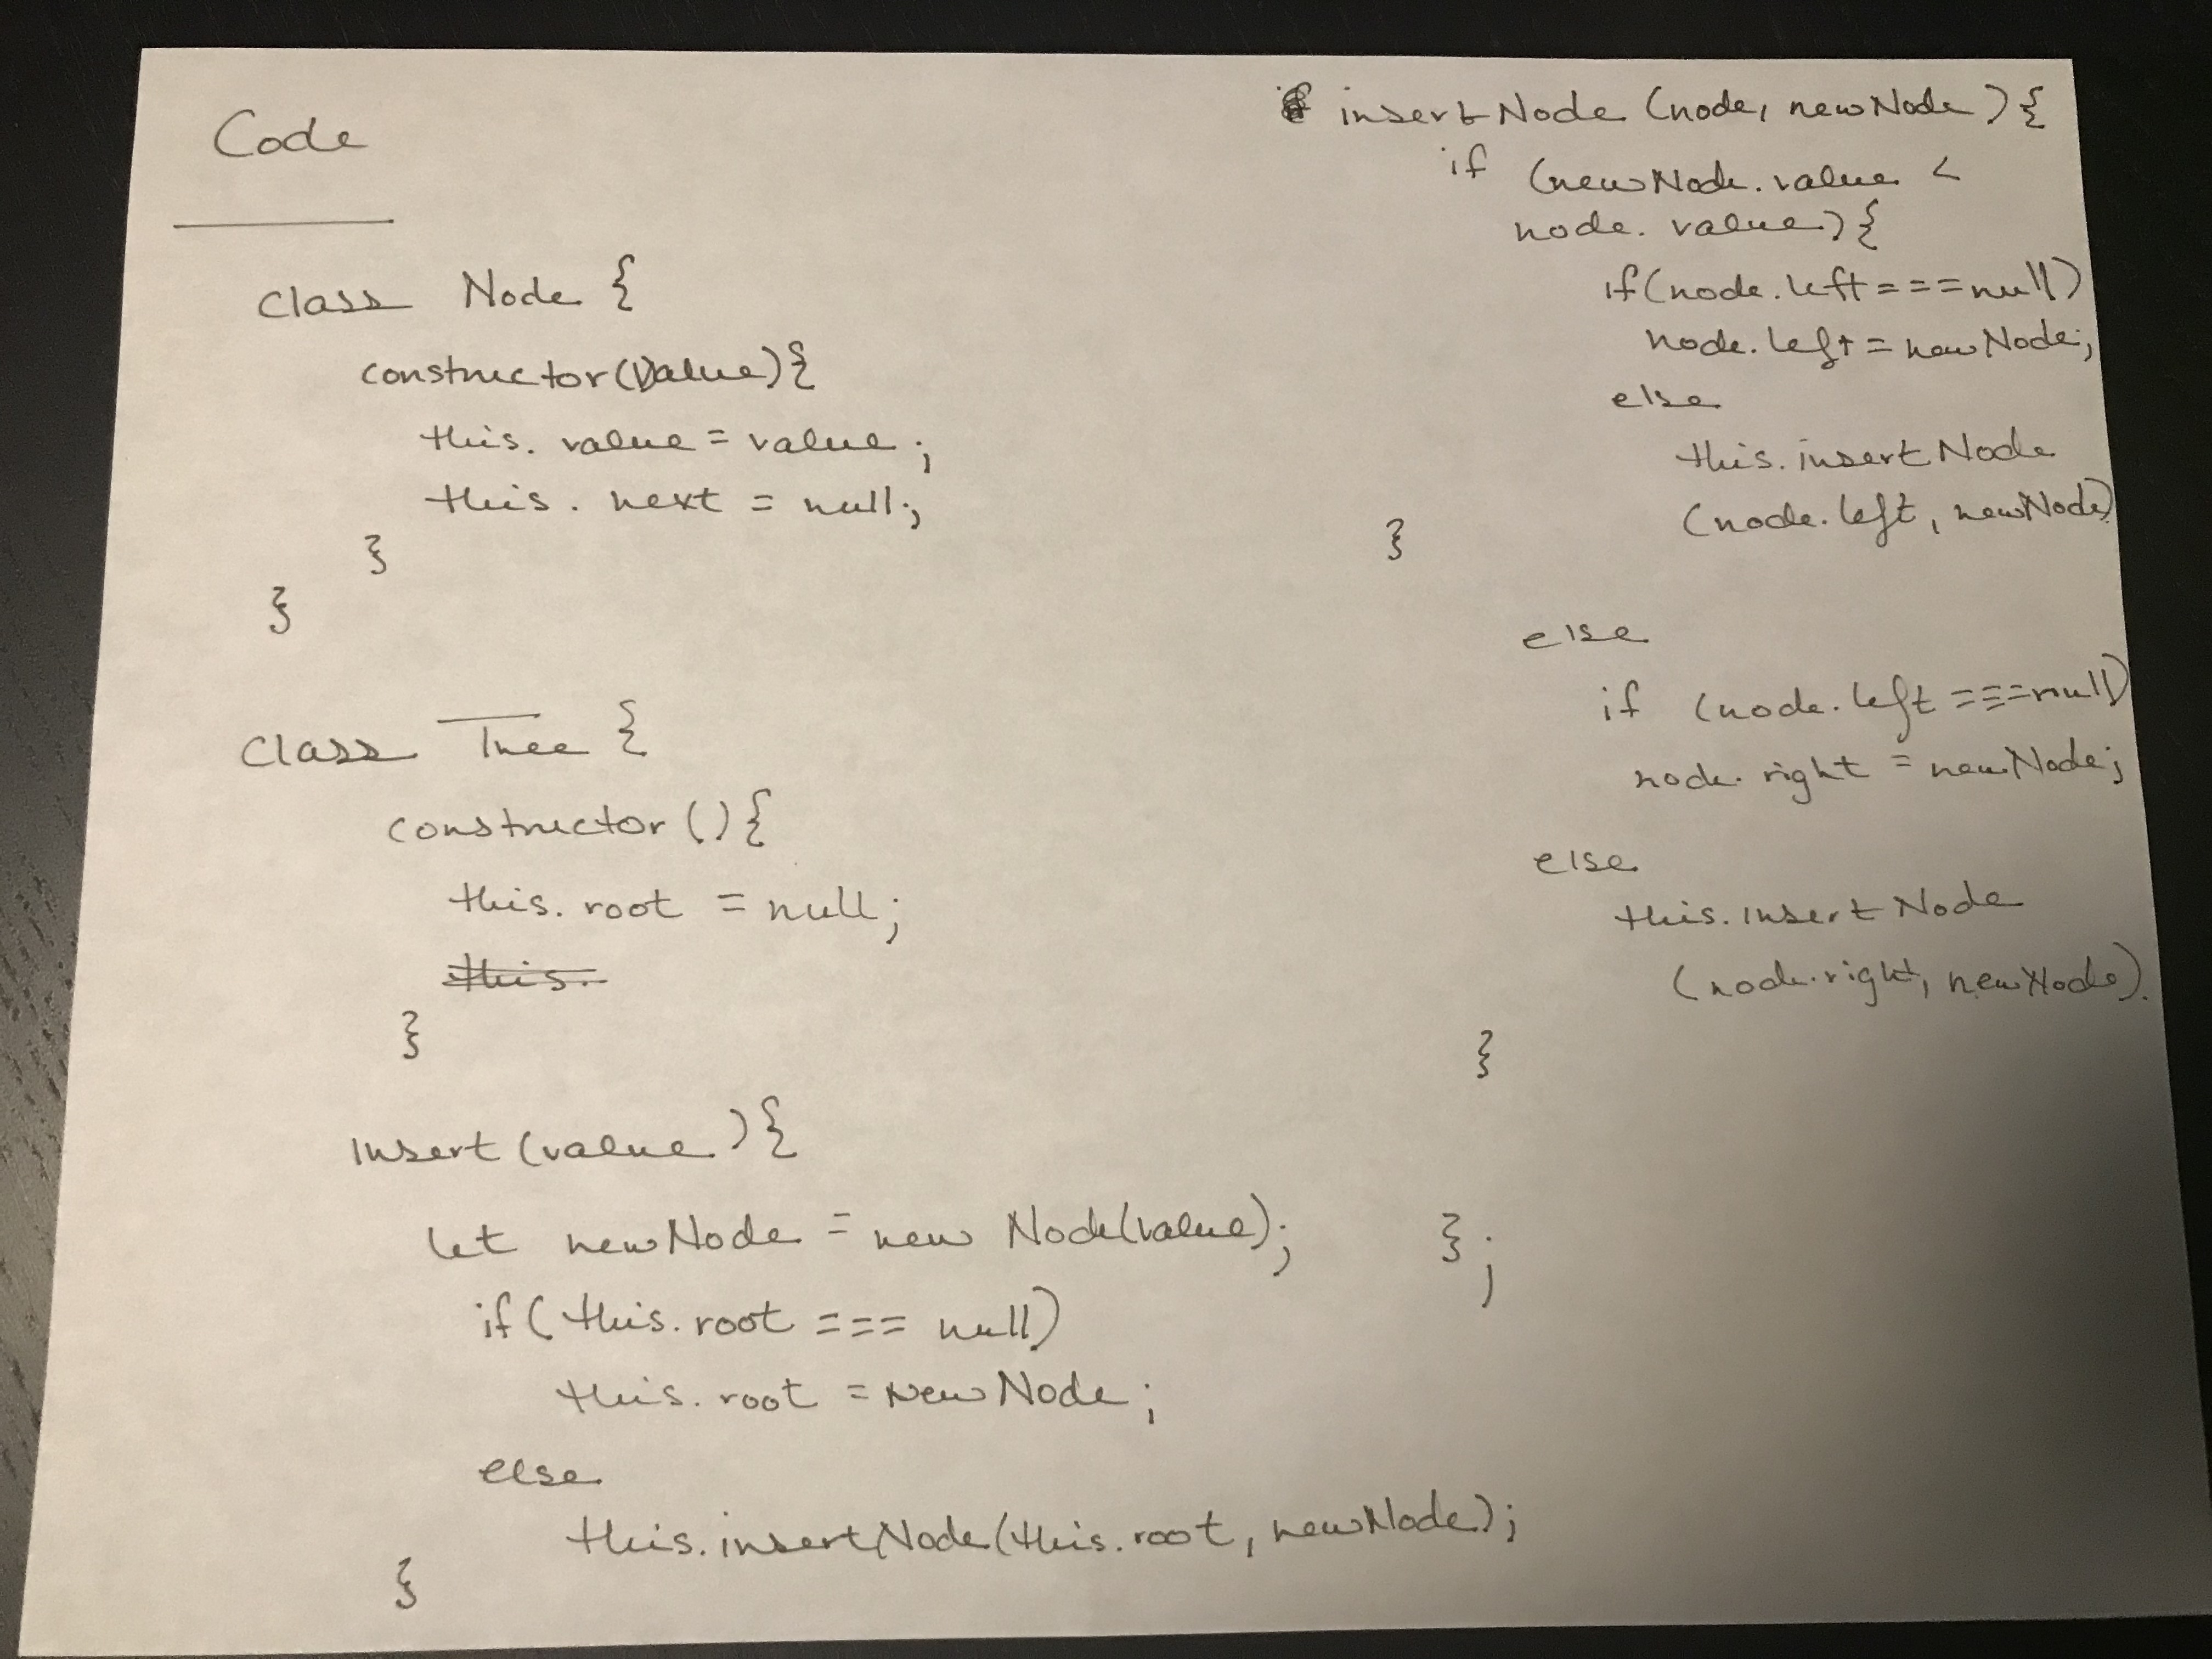 Code
class Node {
constructor(value){
this.value = value;
this.next = null;
}
}
class Tree {
constructor(){
this.root = null;
this.
}
insert(value){
let newNode = new Node(value);
if(this.root === null)
this.root = newNode;
else
this.insertNode(this.root, newNode);
}
insertNode(node, newNode){
if (newNode.value <
node.value){
if(node.left === null)
node.left = newNode;
else
this.insertNode
(node.left, newNode)
}
else
if (node.left === null)
node.right = newNode;
else
this.insertNode
(node.right, newNode).
}
};